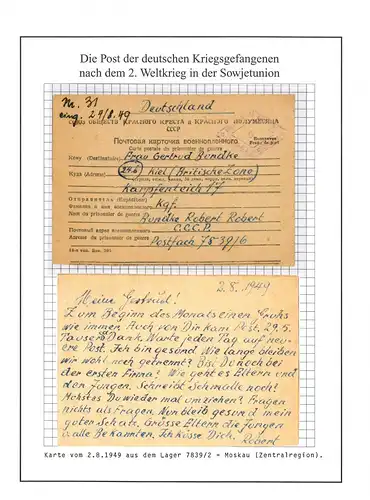 Die Post der deutschen Kriegsgefangenen
nach dem 2. Weltkrieg in der Sowjetunion
Nr. 31
Deutschland
eing. 29/8.49
СОЮЗ ОБЩЕСТВ КРАСНОГО КРЕСТА и КРАСНОГО ПОЛУМЕСЯЦА
СССР
Почтовая карточка военнопленного
Carte postale du prisonnier de guerre
Кому (Destinataire) Frau Gertrud Rundke
Куда (Adresse) (24b) Kiel (Britische Zone)
Karpfenteich 17
Отправитель (Expéditeur)
Фамилия и имя военнопленного Kgf.
Nom du prisonnier de guerre
Rundke Robert Robert
Почтовый адрес военнопленного C.C.C.P.
Adresse du prisonnier de guerre
Postfach 7839/2
2.8.1949
Meine Gertrud!
Zum Beginn des Monats einen Gruhs
wie immer. Auch von Dir kam Post. 29.5.
Tausend Dank. Warte jeden Tag auf neu-
ere Post. Ich bin gesund. Wie lange bleiben
wir wohl noch getrennt? Bist Du noch bei
der ersten Firma? Wie geht es Eltern und
den Jungen. Schreibt Schmalle noch!
Möchtest Du wieder mal umziehen? Fragen
nichts als Fragen. Nun bleib gesund mein
guter Schatz. Grüsse Eltern die Jungen
u. alle Bekannten. Ich küsse Dich. Robert
Karte vom 2.8.1949 aus dem Lager 7839/2 = Moskau (Zentralregion).